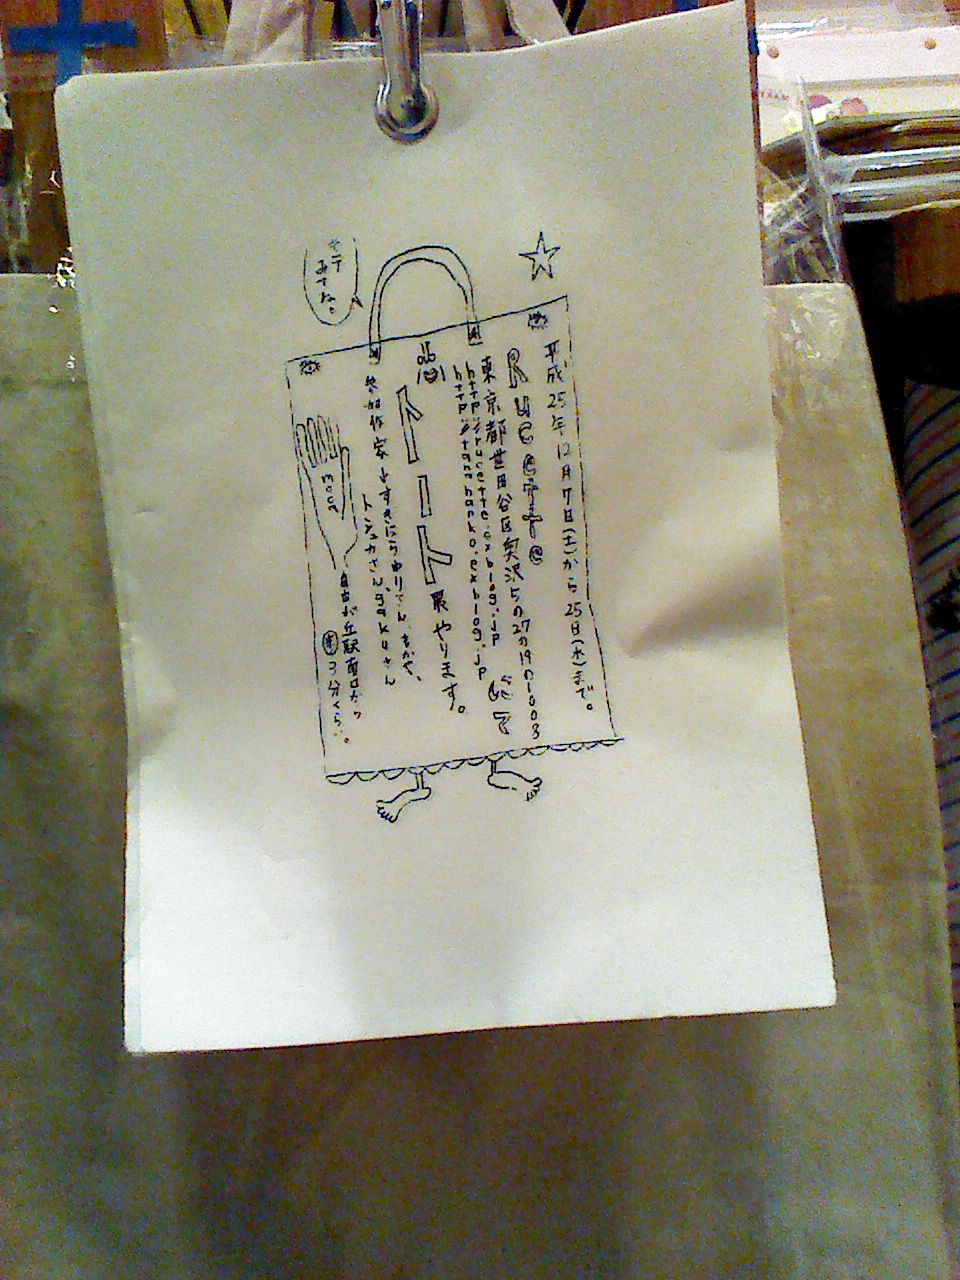 平成25年12月7日(土)から25日(水)まで。
Rucette
東京都世田谷区奥沢5の27の19の1003
http://rucette.exblog.jp
http://tanahanko.exblog.jp
にて
トート展やります。
参加作家→すきにらゆりさん、もかや、
トンュカさん、gakuさん
moca
自由が丘駅南口から
3分くらい。
みてね。